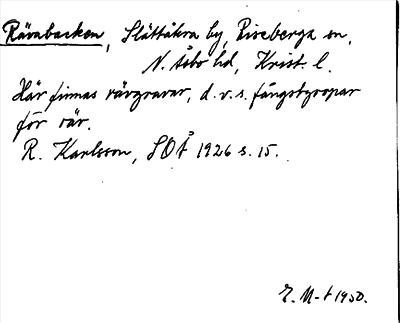 Rävabacken, Slättåkra by, Riseberga sn,
N. Åsbo hd, Krist. l.
Här finnas rävgravar, d. v. s. fångstgropar
för räv.
R. Karlsson, SOÅ 1926 s. 15.
E. M-t 1950.